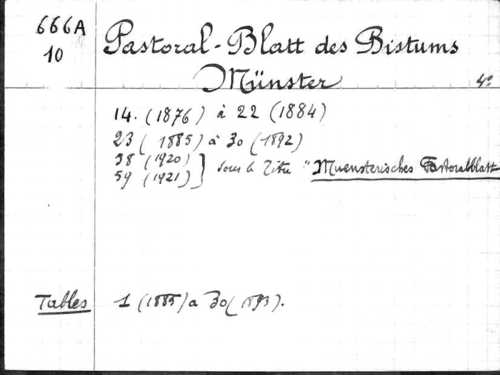 666A
10
Pastoral-Blatt des Bistums
Münster
4°
14. (1876) à 22 (1884)
23 (1885) à 30 (1892)
58 (1920)
59 (1921) } sous le titre "Muensterisches Pastoralblatt
Tables 1 (1885) à 30 (1893).